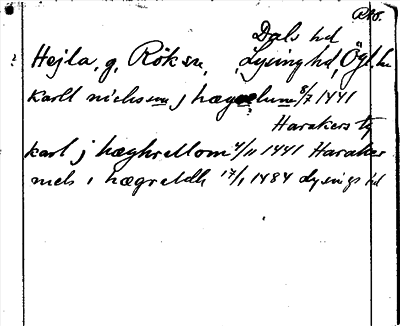 Rao.
Dals hd
Hejla, g, Röksn, Lysing hd, Ögl. ln
Karll nielsson j hægælum 8/7 1441
Harakers tg
karl j hæghrellom 4/11 1441 Haraker
niels i hægraldh 17/1 1484 Lysings hd